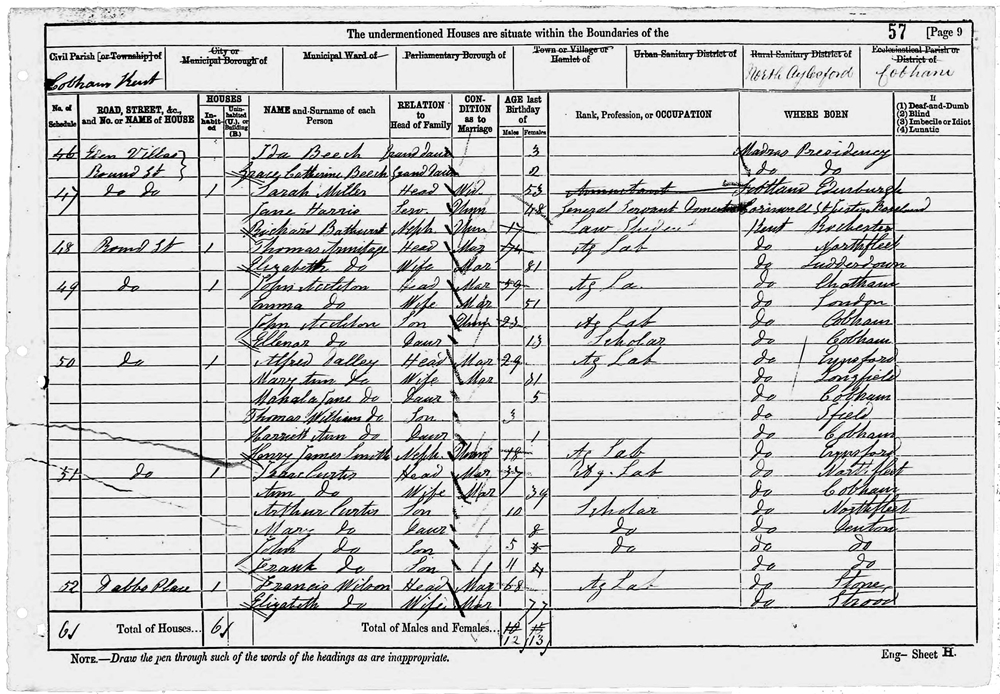 The undermentioned Houses are situate within the Boundaries of the 57 [Page 9
Civil Parish [or Township] of City or Municipal Borough of Municipal Ward of Parliamentary Borough of Town or Village or Hamlet of Urban Sanitary District of Rural Sanitary District of Ecclesiastical Parish or District of
Cobham Kent North Aylesford Cobham
No. of Schedule ROAD, STREET, &c., and No. or NAME of HOUSE HOUSES In-habit-ed Unin-habited (U.), or Building (B.) NAME and Surname of each Person RELATION to Head of Family CON-DITION as to Marriage AGE last Birthday of Males Females Rank, Profession, or OCCUPATION WHERE BORN If (1) Deaf-and-Dumb (2) Blind (3) Imbecile or Idiot (4) Lunatic
46 Eden Villas Ida Beech Grand Daur 3 Madras Presidency
Round St Grace Catherine Beech Grand Daur 2 do do
47 do do 1 Sarah Miller Head Wid 53 Annuitant Scotland Edinburgh
Jane Harris Serv. Unm 48 General Servant Domestic Cornwall St Justin Roseland
Richard Bathurst Neph Unm 17 Law Student Kent Rochester
48 Round St 1 Thomas Armitage Head Mar 74 Ag Lab do Northfleet
Elizabeth do Wife Mar 81 do Luddesdown
49 do 1 John Head Mar 59 Ag La. do Chatham
Emma do Wife Mar 51 do London
John Son Unm 23 Ag Lab do Cobham
Ellenor do Daur 13 Scholar do Cobham
50 do 1 Alfred Head Mar 29 Ag Lab do Eynsford
Mary Ann do Wife Mar 31 do Longfield
Mahala Jane do Daur 5 do Cobham
Thomas William do Son 3 do Ifield
Harriett Ann do Daur 1 do Cobham
Henry James Smith Neph. Unm 18 Ag Lab do Eynsford
51 do 1 Isaac Curtis Head Mar 37 Ag. Lab do Northfleet
Ann do Wife Mar 39 do Cobham
Arthur Curtis Son 10 Scholar do Northfleet
Mary do Daur 8 do do Denton
John do Son 5 do do do
Frank do Son 11 do do
52 Dabbs Place 1 Francis Wilson Head Mar 68 Ag Lab do Stone
Elizabeth do Wife Mar 77 do Strood
61 Total of Houses... 61 Total of Males and Females... 12 13
NOTE.—Draw the pen through such of the words of the headings as are inappropriate. Eng— Sheet H.